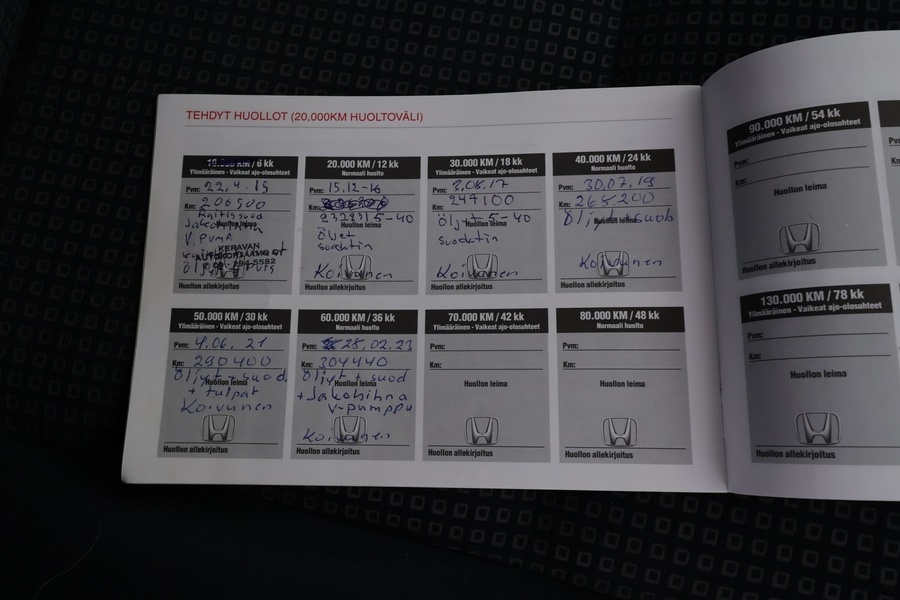 TEHDYT HUOLLOT (20,000KM HUOLTOVÄLI)
10.000 KM / 6 kk
Ylimääräinen - Vaikeat ajo-olosuhteet
Pvm: 22.4.15
Km: 206500
V. Pumå
KERAVAN
Huollon allekirjoitus
20.000 KM / 12 kk
Normaali huolto
Pvm: 15.12-16
Km:
232231 5-40
Huollon leima
Öljyt
suodatin
Koivunen
Huollon allekirjoitus
30.000 KM / 18 kk
Ylimääräinen - Vaikeat ajo-olosuhteet
Pvm: 2.08.17
Km: 247100
Öljyt 5-40
Huollon leima
suodatin
Koivunen
Huollon allekirjoitus
40.000 KM / 24 kk
Normaali huolto
Pvm: 30.07.19
Km: 268200
Öljyt + suod
Huollon leima
Koivunen
Huollon allekirjoitus
50.000 KM / 30 kk
Ylimääräinen - Vaikeat ajo-olosuhteet
Pvm: 4.06. 21
Km: 290400
Öljyt + suod.
Huollon leima
+ tulpat
Koivunen
Huollon allekirjoitus
60.000 KM / 36 kk
Normaali huolto
Pvm: 28.02.23
Km: 304440
Öljyt + suod
Huollon leima
+ Jakohihna
V-pumppu
Koivunen
Huollon allekirjoitus
70.000 KM / 42 kk
Ylimääräinen - Vaikeat ajo-olosuhteet
Pvm:
Km:
Huollon leima
Huollon allekirjoitus
80.000 KM / 48 kk
Normaali huolto
Pvm:
Km:
Huollon leima
Huollon allekirjoitus
90.000 KM / 54 kk
Ylimääräinen - Vaikeat ajo-olosuhteet
Pvm:
Km:
Huollon leima
Huollon allekirjoitus
130.000 KM / 78 kk
Ylimääräinen - Vaikeat ajo-olosuhteet
Pvm:
Km:
Huollon leima
Huollon allekirjoitus